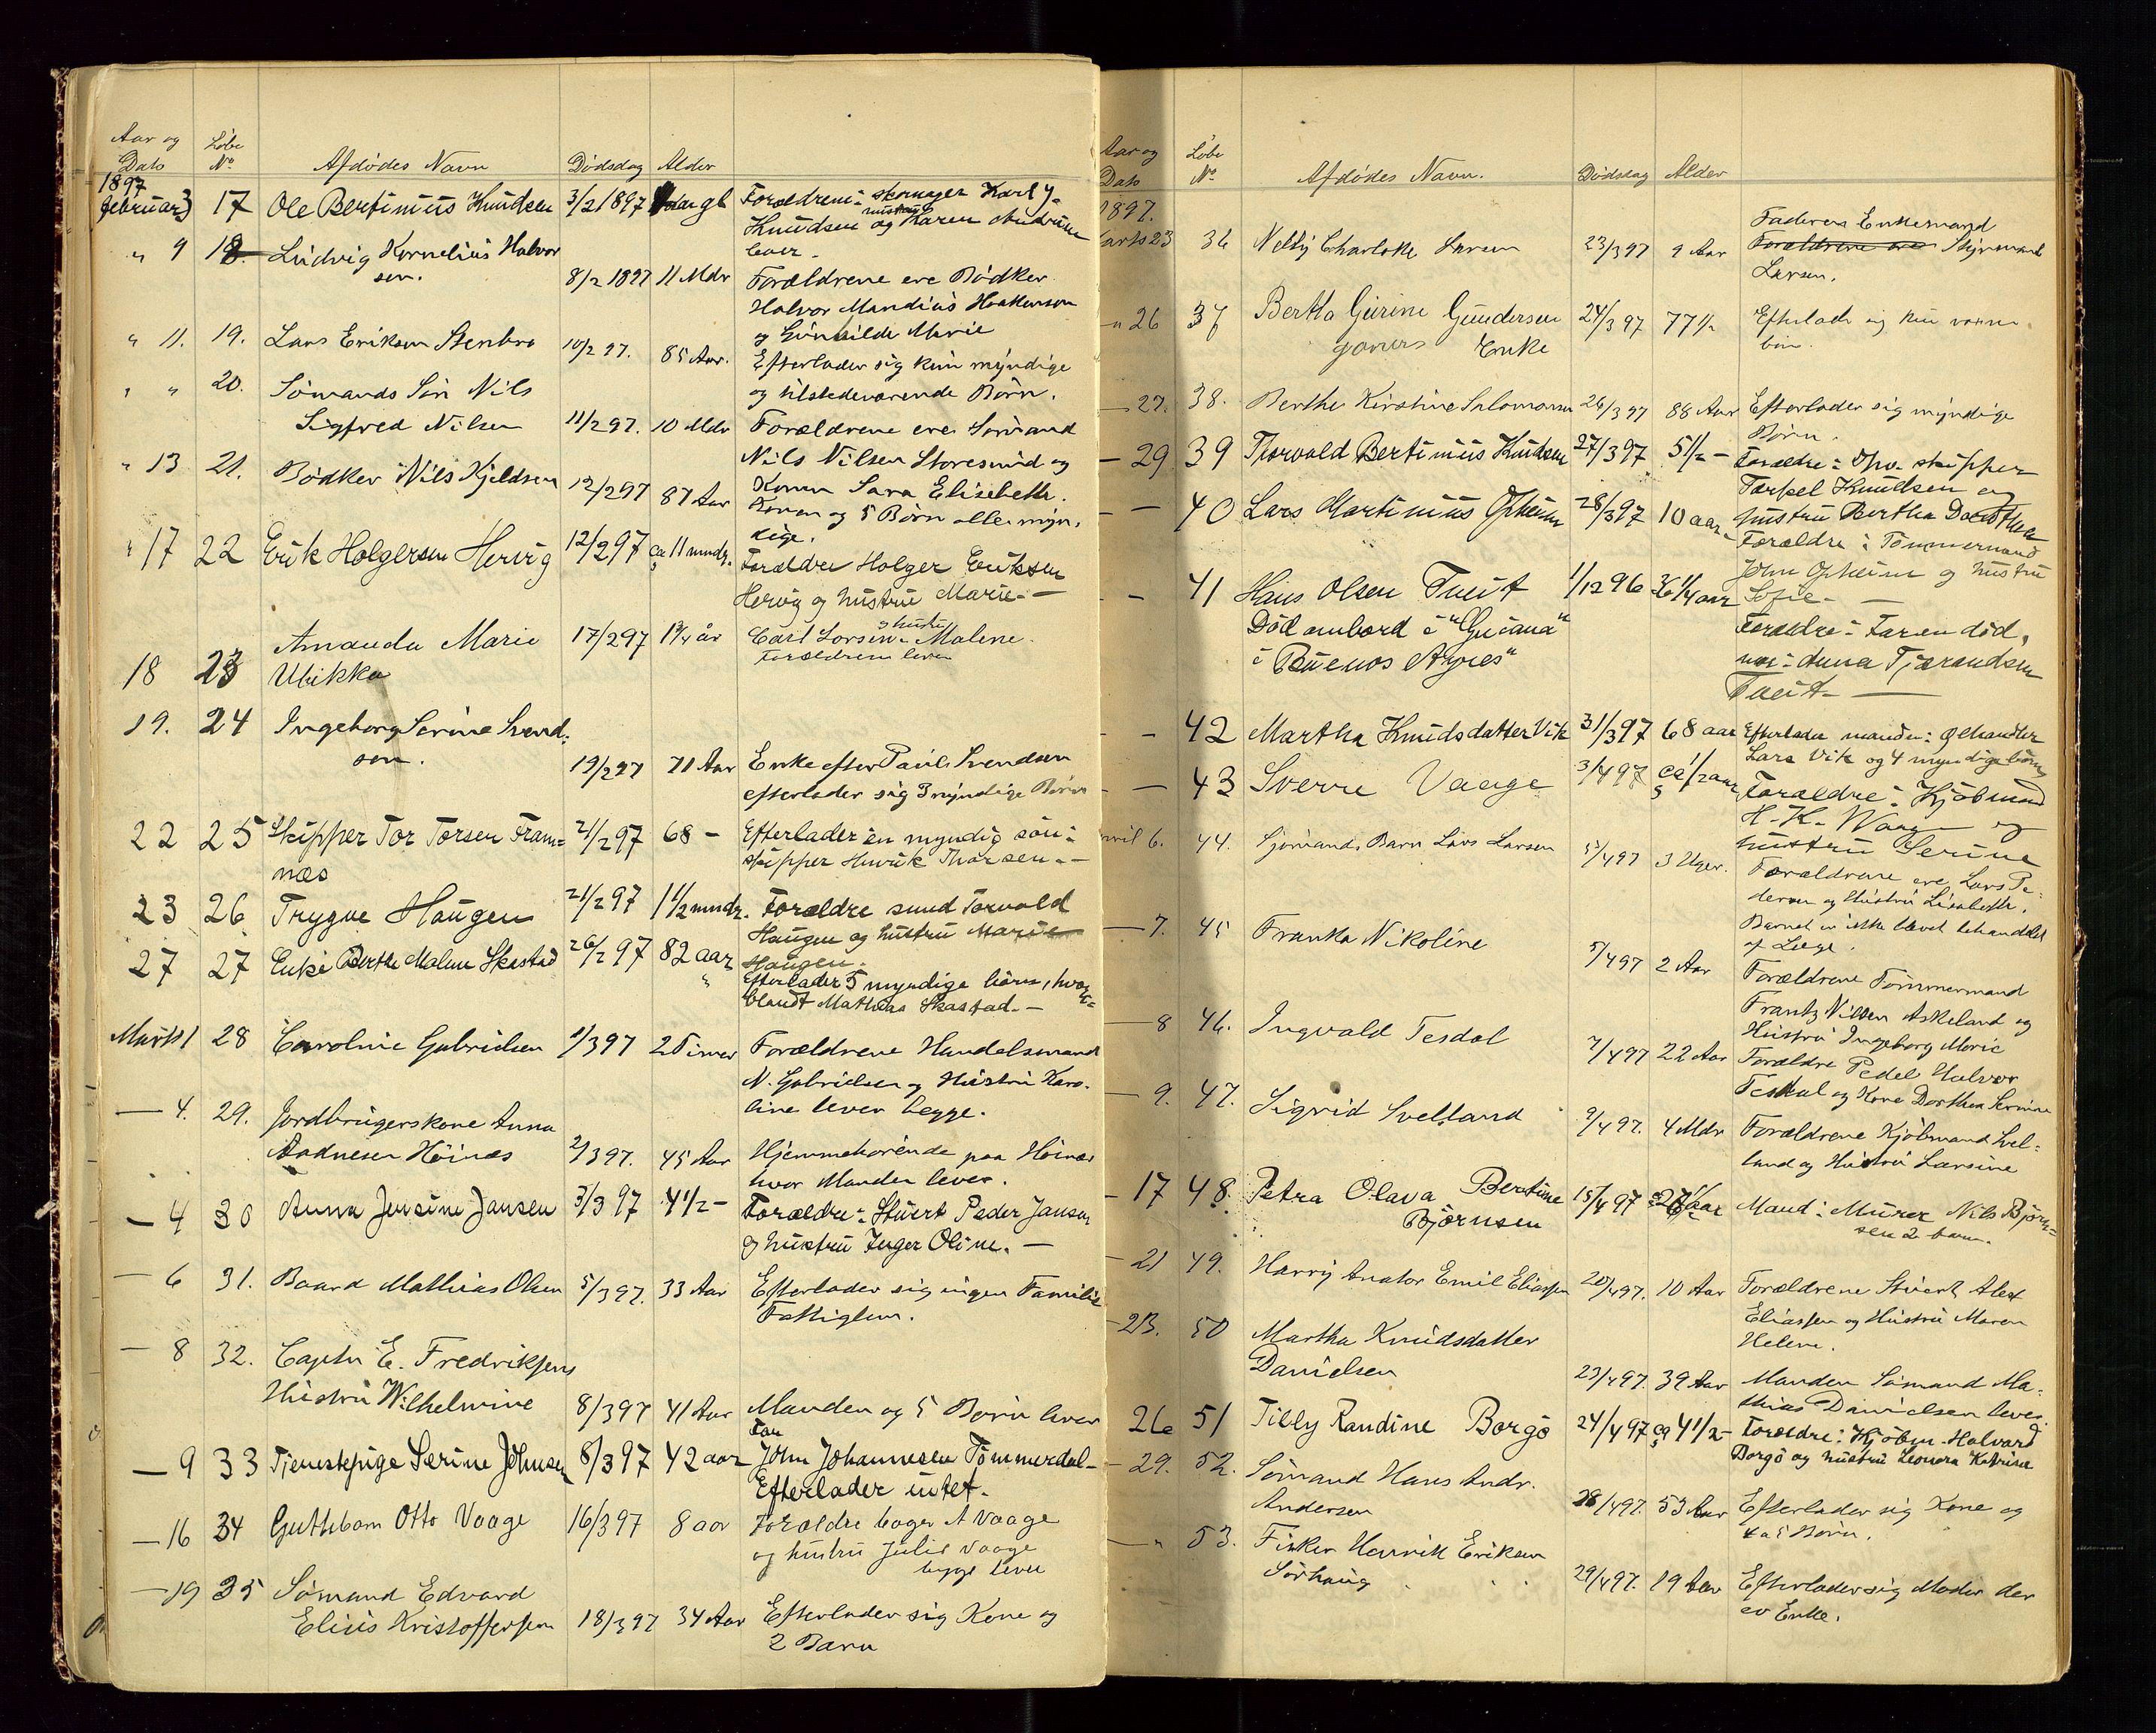 Aar og Dato Løbe No Afdødes Navn Dødsdag Alder
1897
Februar 3 17 Ole Bertinius Knudsen 3/2 1897 aar gl Forældrene: skomager Karl J.
Knudsen og hustru Karen Andrine
lever.
" 9 18. Ludvig Kornelius Halvor
sen. 8/2 1897 11 Mdr Forældrene ere Bødker
Halvor Mandius Haakonsen
og Gunhilde Marie
" 11. 19. Lars Eriksen Stenbro 10/2 97. 85 Aar. Efterlader sig kun myndige
og tilstedeværende Børn.
" " 20. Sömands Sön Nils
Sigfred Nilsen 11/2 97. 10 Mdr Forældrene ere Sömand
Nils Nilsen Storesund og
Konen Sara Elisebeth.
" 13 21. Bödker Nils Kjeldsen 12/2 97 87 Aar Konen og 5 Børn alle myn-
dige.
" 17 22 Erik Holgersen Hervig 12/2 97 ca 11 mndr. Forældre Holger Eriksen
Hervig og hustru Marie. —
18 23 Amanda Marie
Ulrikka 17/2 97 1 3/4 år Carl Larsen og hustru Malene.
Forældrene lever
19. 24 Ingeborg Serine Svend-
sen. 19/2 97 71 Aar Enke efter Paul Svendsen
efterlader sig 3 myndige Børn
22 25 Skipper Tor Torsen Fram=
næs 21/2 97 68 – Efterlader én myndig sön:
skipper Henrik Thorsen. —
23 26 Trygve Haugen 21/2 97 1 1/2 mndr. Forældre smed Torvald
Haugen og hustru Marie
Haugen.
27 27 Enke Berthe Malene Skastad 26/2 97 82 aar Efterlader 5 myndige börn, hvor=
blandt Mathias Skastad. —
Marts 1 28 Caroline Gabrielsen 1/3 97 2 Timer Forældrene Handelsmand
N. Gabrielsen og Hustru Karo-
line lever begge.
— 4. 29. Jordbrugerskone Anna
Aadnesen Höinæs 2/3 97. 45 Aar Hjemmehørende paa Höinæs
hvor Manden lever.
— 4 30 Anna Jensine Jansen 3/3 97 4 1/2 – Forældre: Stuert Peder Jansen
og hustru Inger Oline. —
— 6 31. Baard Mathias Olsen 5/3 97. 33 Aar Efterlader sig ingen Familie
Fattiglem.
— 8 32. Captn E. Fredriksens
Hustru Wilhelmine 8/3 97 41 Aar Manden og 5 Børn lever
— 9 33 Tjenestepige Serine Johnsen 8/3 97 42 aar Far John Johannesen Tømmerdal –
Efterlader intet.
— 16 34 Guttebarn Otto Vaage 16/3 97 8 aar Forældre bager A Vaage
og hustru Julie Vaage
begge lever
— 19 35 Sömand Edvard
Elius Kristoffersen 18/3 97 34 Aar Efterlader sig Kone og
2 Børn
Aar og Dato Løbe No Afdødes Navn. Dødsdag Alder
1897.
Marts 23 36 Nelly Charlotte Larsen 23/3 97 9 Aar Faderen Enkemand
Forældrene ere Styrmand
Larsen.
" 26 37 Bertha Gurine Gundersen
Enke 24/3 97 77 1/2 Efterlader sig kun voxne
børn.
— 27. 38. Berthe Kirstine Salomonsen 26/3 97 88 Aar Efterlader sig myndige
Børn.
— 29 39 Thorvald Bertinius Knudsen 27/3 97 5 1/2 – Forældre: Opv. skipper
Tarkel Knudsen og
hustru Bertha Dorthea
— – 40 Lars Martinius Opheim 28/3 97 10 aar Forældre: Tømmermand
John Opheim og hustru
Sofie. —
– 41 Hans Olsen Tveit
Död ombord i "Guiana"
i "Buenos Ayres" 1/12 96 36 1/4 aar Forældre: Faren död,
mor: Anna Tjerandsen
Tveit. —
– – 42 Martha Knudsdatter Vik 31/3 97 68 aar Efterlader manden: Ølhandler
Lars Vik og 4 myndige börn
– — 43 Sverre Vaage 3/4 97 ca 1/2 aar Forældre: Kjöbmand
H. K. Waage og
hustru Serine
April 6. 44. Sjömands Barn Lars Larsen 5/4 97 3 Uger. Forældrene ere Lars Pe-
dersen og Hustru Lisabeth.
Barnet er ikke blevet behandlet
af Læge.
— 7. 45 Franka Nikoline 5/4 97 2 Aar Forældrene Tømmermand
Frantz Nilsen Askeland og
Hustru Ingeborg Marie
— 8 46. Ingvald Tesdal 7/4 97 22 Aar Forældre Pedel Halvor
Tesdal og Kone Dorthea Serine
— 9. 47. Sigrid Svelland 9/4 97. 4 Mdr Forældrene Kjöbmand Svel-
land og Hustru Larsine
— 17 48. Petra Olava Bertine
Björnsen 15/4 97 aar Mand: Murer Nils Björn=
sen 2 barn.
— 21 49. Harry Anator Emil Eliassen 20/4 97. 10 Aar Forældrene Stuert Alex
Eliassen og Hustru Maren
Helene.
— 23. 50 Martha Knudsdatter
Danielsen 23/4 97. 39 Aar Manden Sömand Ma-
thias Danielsen lever.
26 51 Tilly Randine Borgö 24/4 97 ca 4 1/2 – Forældre: Kjöbm. Halvard
Borgö og hustru Leonora Katrine
— 29. 52. Sömand Hans Andr.
Andersen 28/4 97. 53 Aar Efterlader sig Kone og
4 a 5 Børn.
— " 53. Fisker Henrik Eriksen
Sörhaug 29/4 97. 19 Aar Efterlader sig Moder der
er Enke.